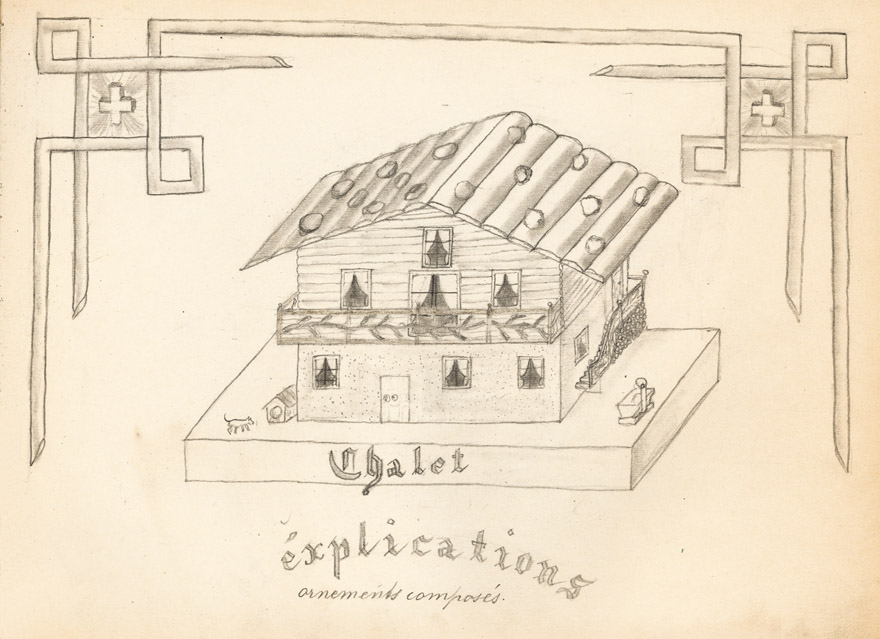 Chalet
éxplications
ornements composés.